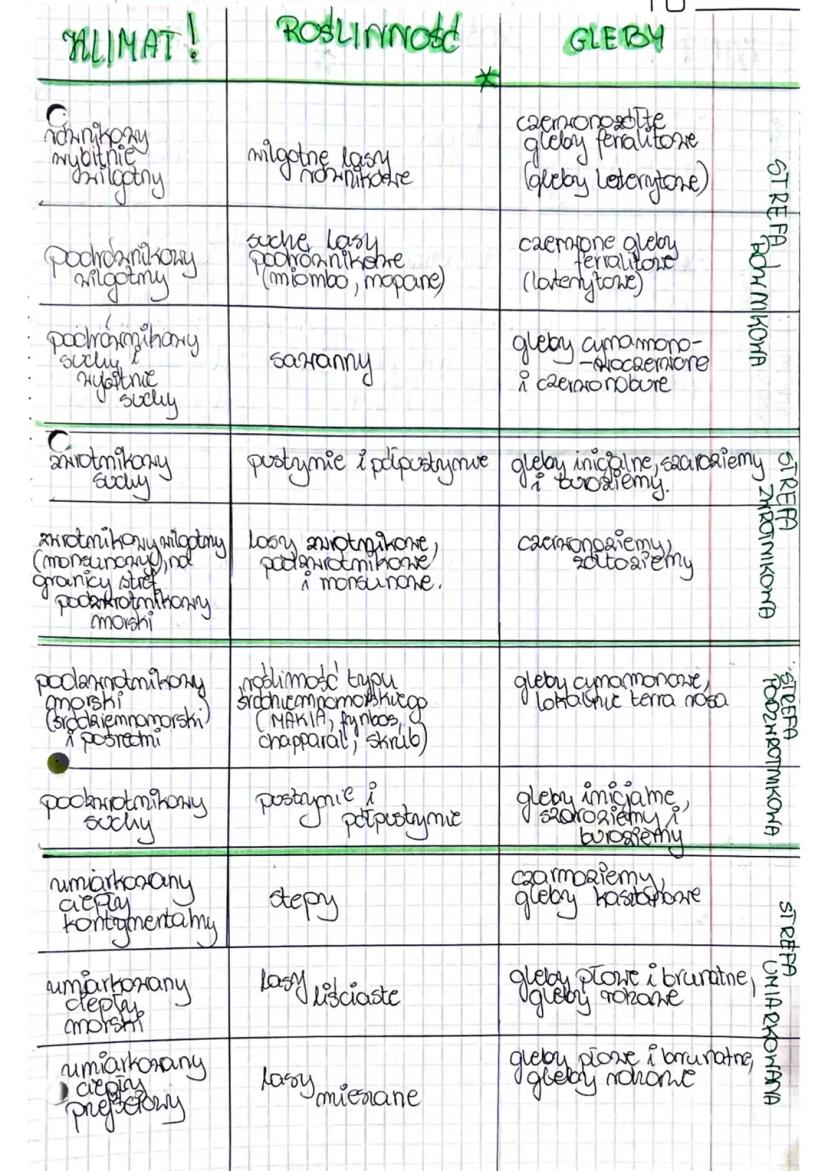 KLIMAT!
ROŚLINNOŚĆ
GLEBY
równikowy
wybitnie
wilgotny
wilgotne lasy
równikowe
czerwonożółte
gleby ferralitowe
(gleby leterytowe)
podrównikowy
wilgotny
suche lasy
podrównikowe
(miombo, mopane)
czerwone gleby
ferralitowe
(laterytowe)
podrównikowy
suchy i
wybitnie
suchy
sawanny
gleby cynamono-
-woczerwone
i czerwonobure
STREFA
RÓWNIKOWA
zwrotnikowy
suchy
pustynie i półpustynie
gleby inicjalne, szaroziemy
i buroziemy.
zwrotnikowy wilgotny
(monsunowy), na
granicy stref
podzwrotnikowy
morski
lasy zwrotnikowe,
podzwrotnikowe
i monsunowe.
czerwonoziemy,
żółtoziemy
STREFA
ZWROTNIKOWA
podzwrotnikowy
morski
(śródziemnomorski)
i pośredni
roślinność typu
śródziemnomorskiego
(MAKIA, fynbos,
chapparal, skrub)
gleby cynamonowe,
lokalnie terra rosa
podzwrotnikowy
suchy
pustynie i
półpustynie
gleby inicjalne,
szaroziemy i
buroziemy
STREFA
PODZWROTNIKOWA
umiarkowany
ciepły
kontynentalny
stepy
czarnoziemy,
gleby kasztanowe
umiarkowany
ciepły
morski
lasy
liściaste
gleby płowe i brunatne,
gleby rdzawe
umiarkowany
ciepły
przejściowy
lasy
mieszane
gleby płowe i brunatne,
gleby rdzawe
STREFA
UMIARKOWANA